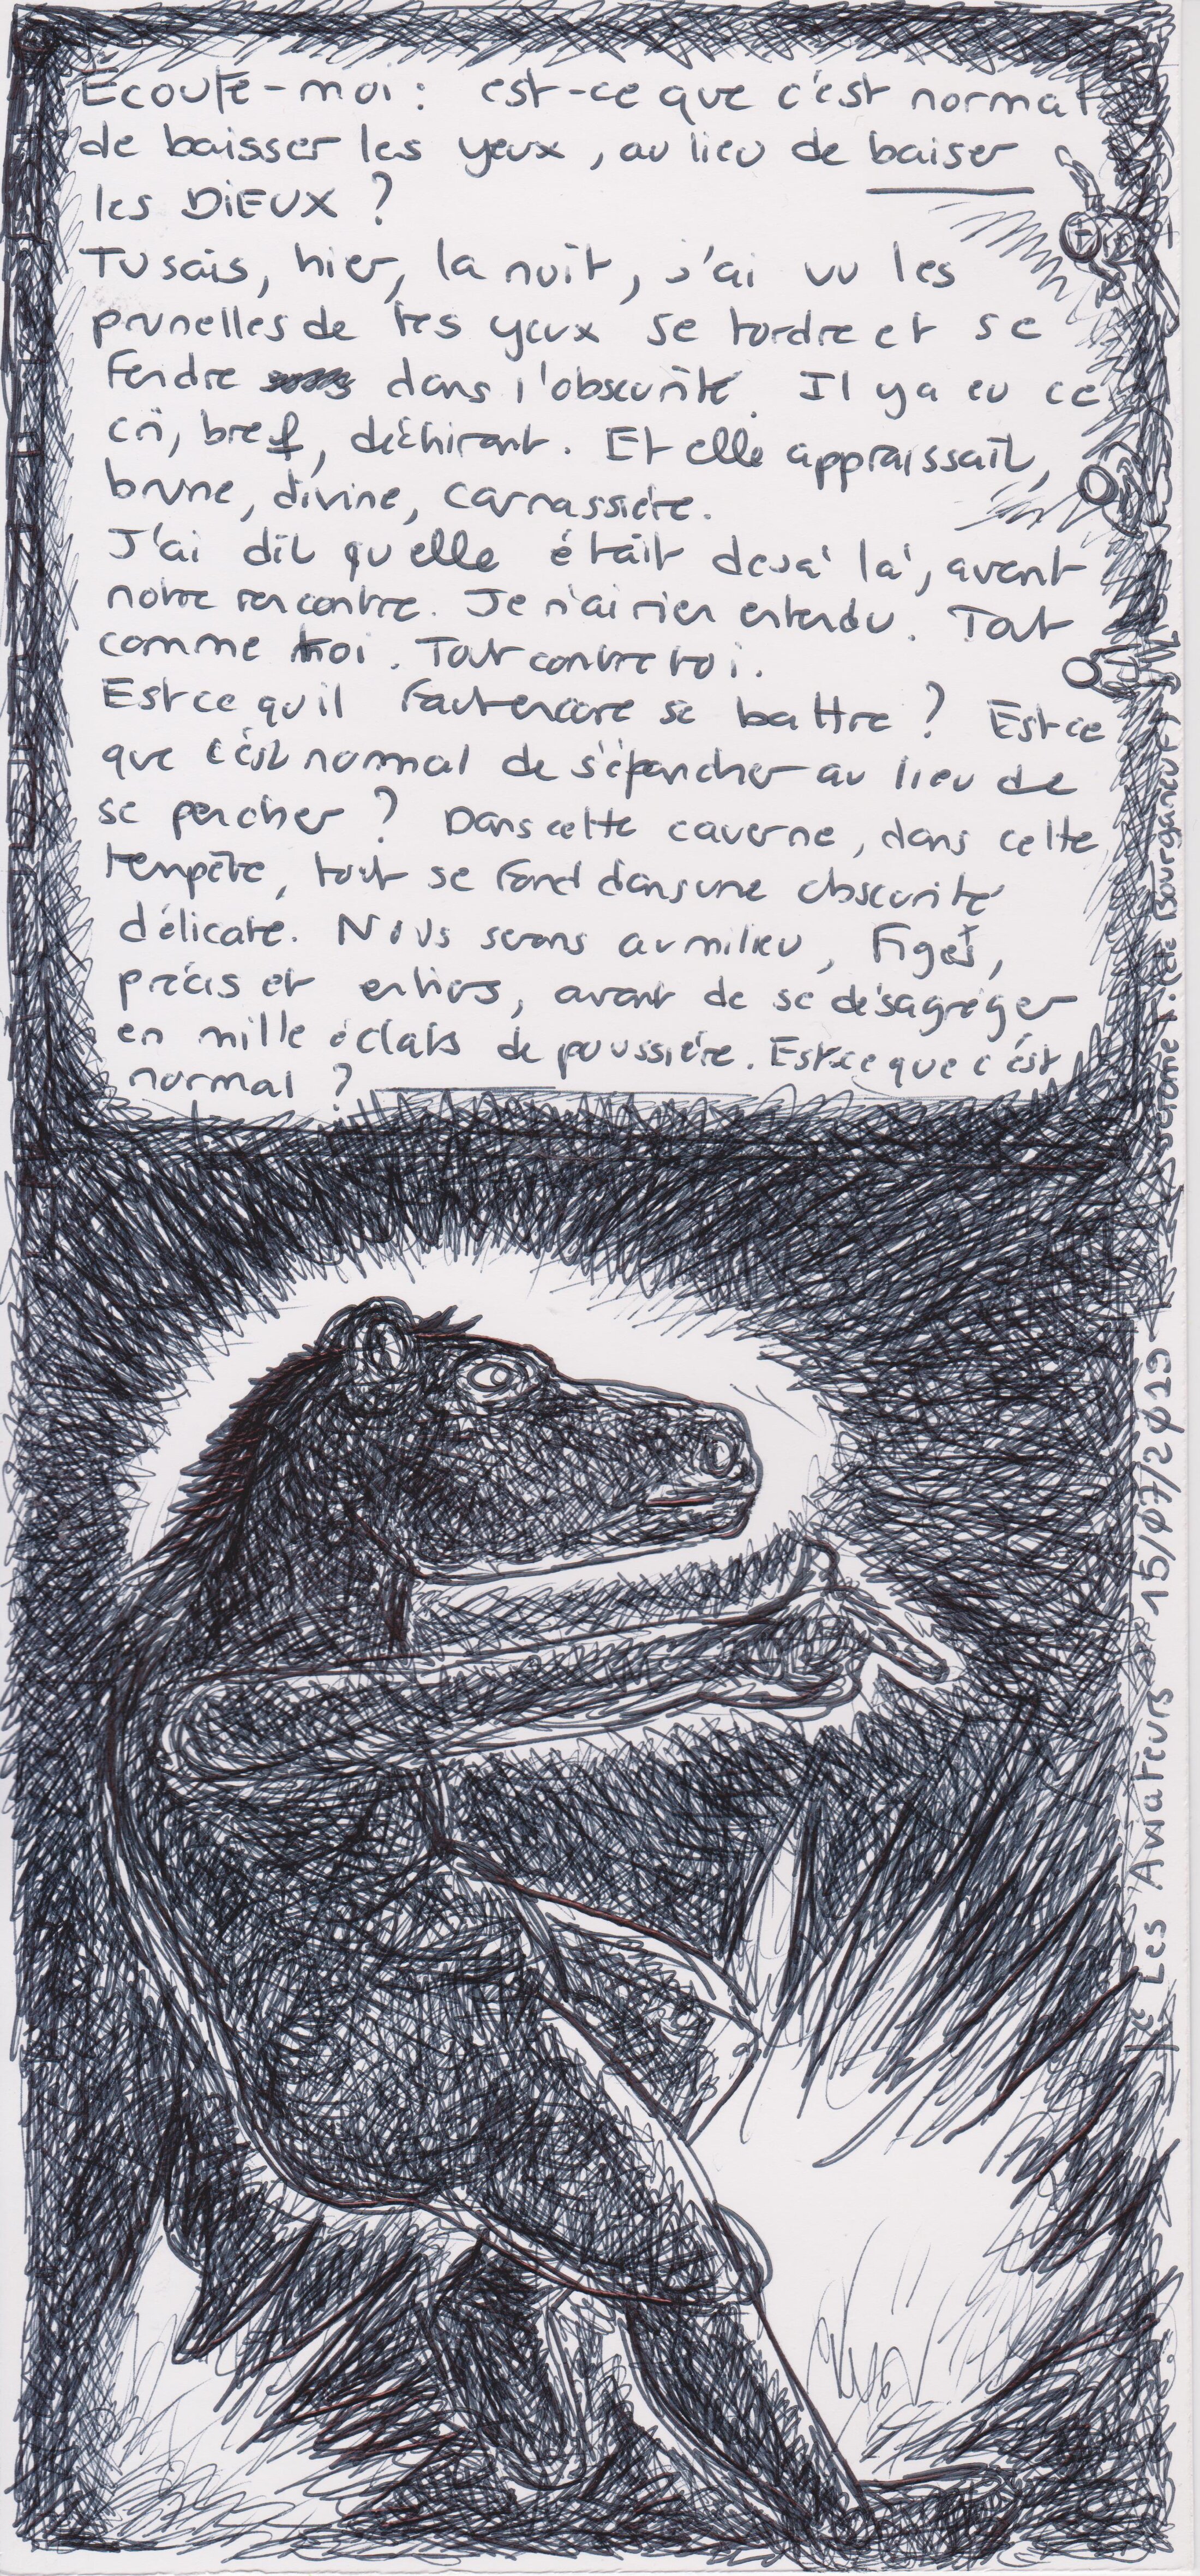 Écoute-moi : est-ce que c'est normal
de baisser les yeux, au lieu de baiser
les DIEUX ?
Tu sais, hier, la nuit, j'ai vu les
prunelles de tes yeux se tordre et se
fendre dans l'obscurité. Il y a eu ce
cri, bref, déchirant. Et elle appraissait,
brune, divine, carnassière.
J'ai dit qu'elle était dejà là, avant
notre rencontre. Je n'ai rien entendu. Tout
comme toi. Tout contre toi.
Est ce qu'il faut encore se battre ? Est ce
que c'est normal de s'épancher au lieu de
se percher ? Dans cette caverne, dans cette
tempête, tout se fond dans une obscurité
délicate. Nous serons au milieu, figés,
précis et entiers, avant de se désagréger
en mille éclats de poussière. Est ce que c'est
normal ?
Les Aviateurs 15/07/2019 Bourganeuf